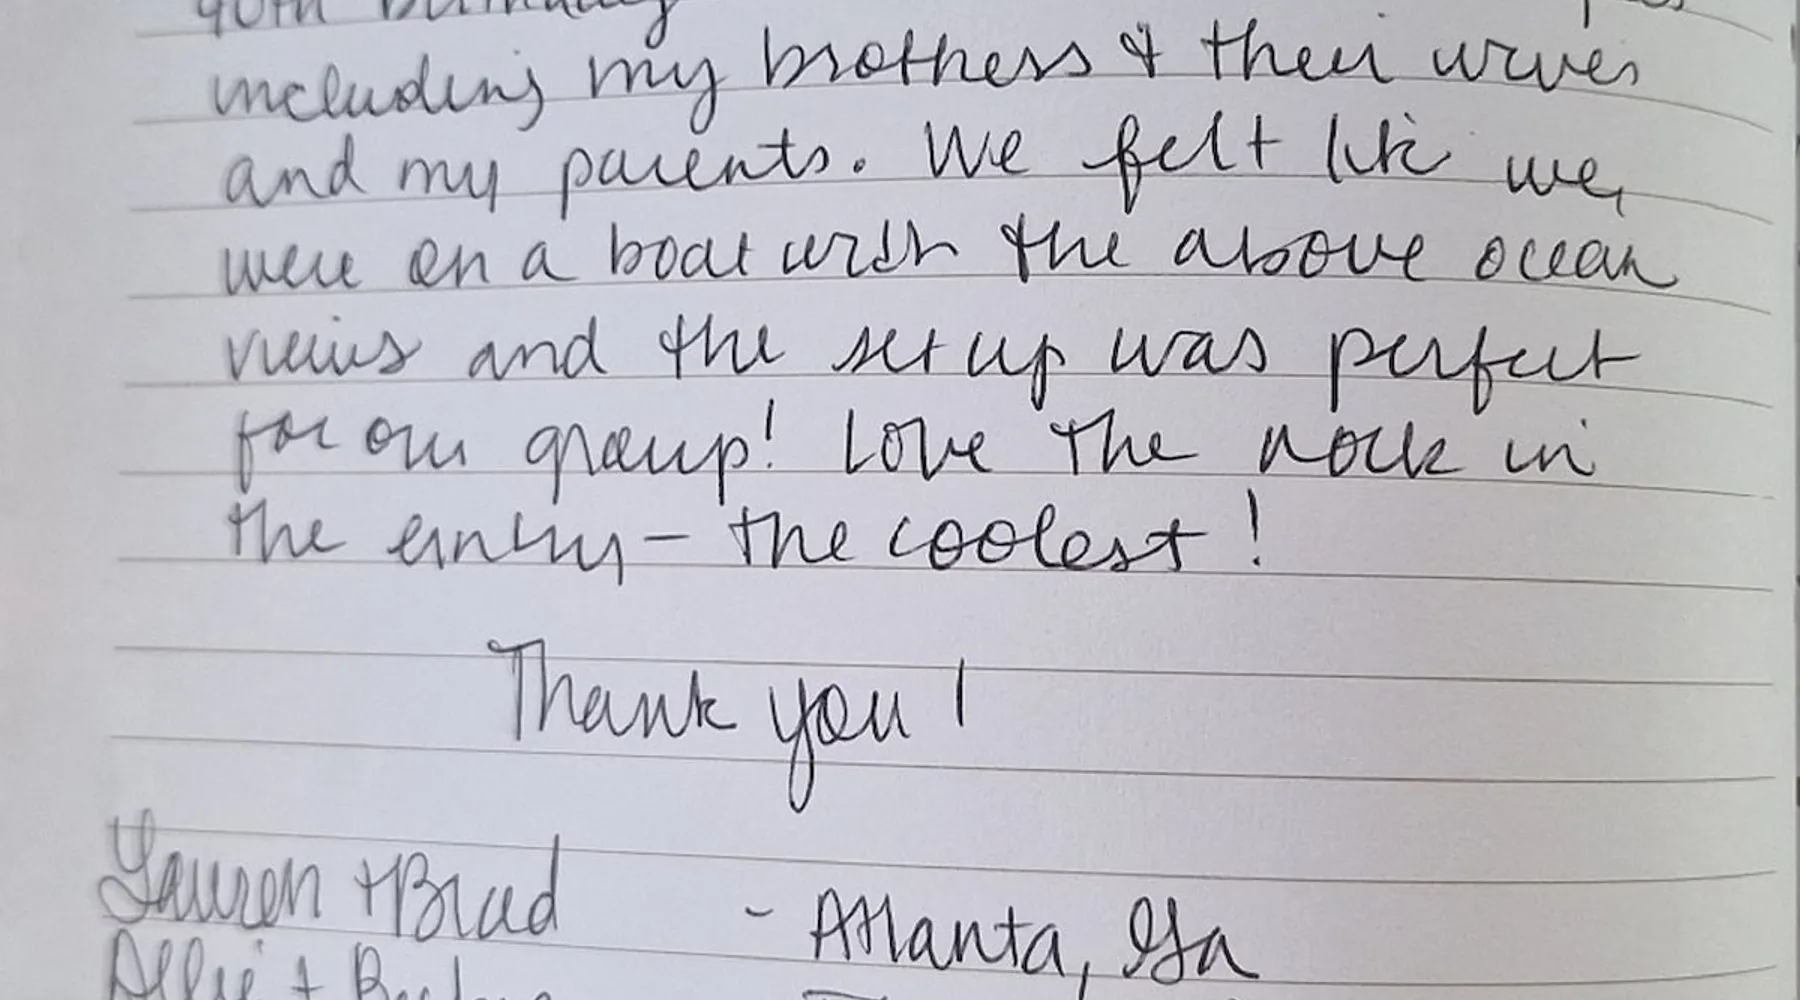 40th birthday
including my brothers & their wives
and my parents. We felt like we
were on a boat with the above ocean
views and the set up was perfect
for our group! Love the nook in
the entry - the coolest!
Thank you!
Lauren + Brad - Atlanta, Ga
Allie +